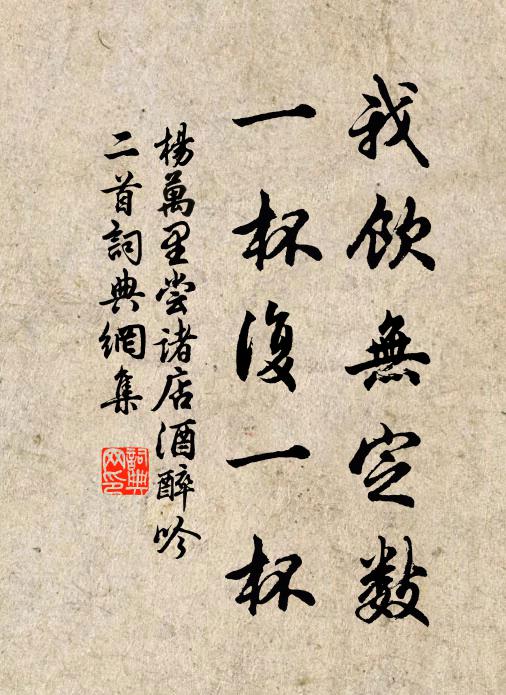 我飲無定數
一杯復一杯
楊萬里嘗諸店酒醉吟
二首詞典網集
詞典
网印